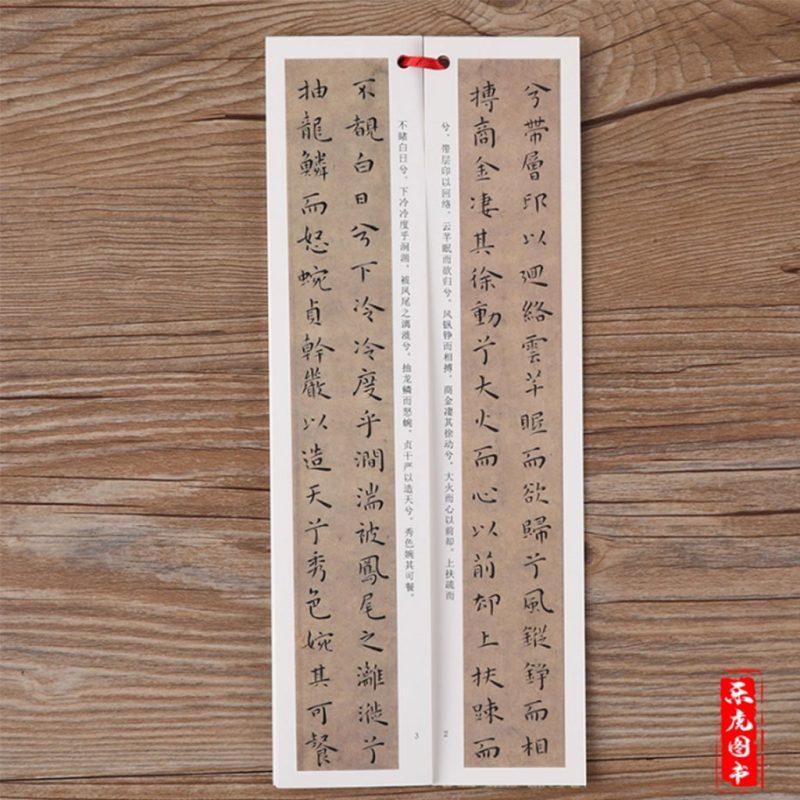 兮帶層印以迴絡雲芊眠而欲歸兮風鏦錚而相
搏商金凄其徐動兮大火而心以前却上扶踈而
兮，带层印以回络，云芊眠而欲归兮，风鏦铮而相搏，商金凄其徐动兮，大火而心以前却。上扶疏而
2
不覩白日兮下冷冷度乎澗湍被鳳尾之灕漇兮
抽龍鱗而怒蜿貞幹嚴以造天兮秀色婉其可餐
不睹白日兮，下冷冷度乎涧湍，被凤尾之漓漇兮，抽龙鳞而怒蜿。贞干严以造天兮，秀色婉其可餐。
3
乐虎图书